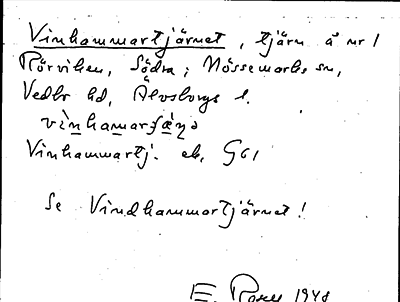 Vinhammartjärnet, tjärn å nr 1
Rörviken, Södra; Nössemarks sn,
Vedbo hd, Älvsborgs l.
Vinhammartj. ek. G61
Se Vindhammartjärnet!
E. 1948